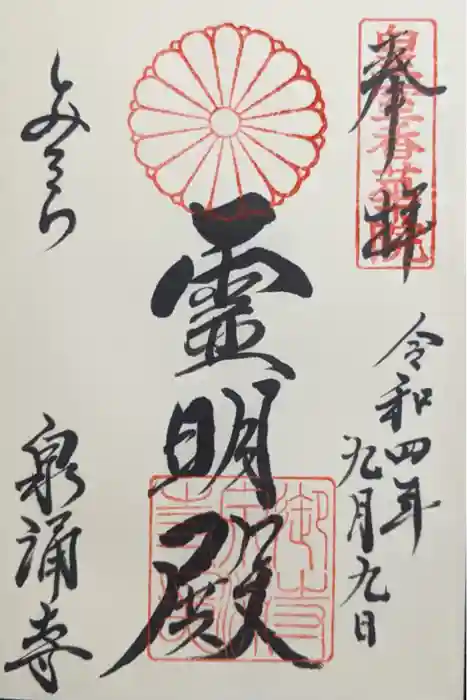 奉拝
皇室香華院
令和四年
九月九日
霊明殿
泉涌寺